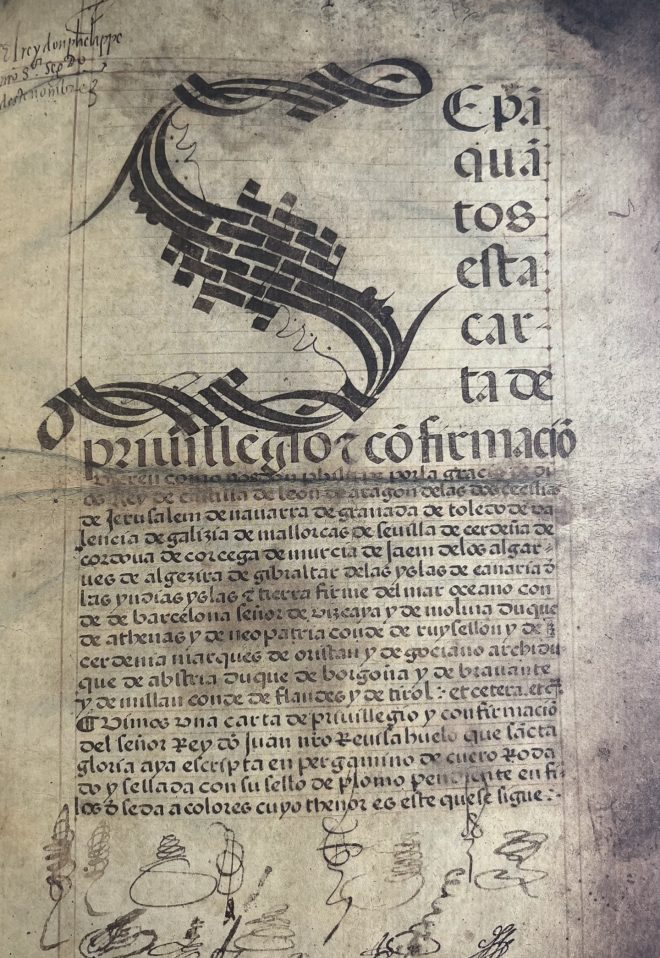 el rey don phelippe
nrō Sr. Sep
deste nombre
SEpā
quā
tos
esta
car-
ta de
priuillegio ⁊ cō firmació
vieren como nos don philipe por la gracia de di
os Rey de castilla de leon de aragon delas dos cecilias
de Jerusalem de nauarra de granada de toledo de va
lencia de galizia de mallorcas de seuilla de cerdeña de
cordoua de corcega de murcia de Jaem delos algar-
ues de algezira de gibraltar delas yslas de canaria d̄
las yndias yslas ⁊ tierra firme del mar oceano con
de de barcelona señor de vizcaya y de molina duque
de athenas y de neopatria conde de ruysellon y de
cerdenia marques de oristan y de gociano archidu
que de abstria duque de borgoña y de brauante
y de millan conde de flandes y de tirol : et cetera. etc̄.
¶ Vimos vna carta de priuillegio y confirmació
del señor Rey dō Juan nrō Reuisahuelo que sāncta
gloria aya escripta en pergamino de cuero Roda
do y sellada con su sello de plomo pendiente en fi-
los d̄ seda a colores cuyo thenor es este que se sigue :-